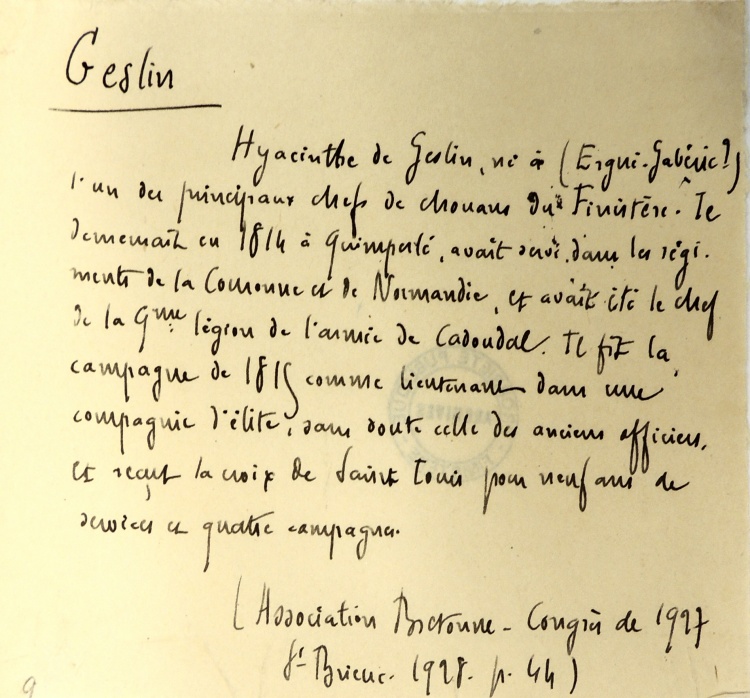 Geslin
Hyacinthe de Geslin, né à (Ergué-Gabéric?)
l'un des principaux chefs de chouans du Finistère. Il
demeurait en 1814 à Quimperlé, avait servi dans les régi-
ments de la Couronne et de Normandie, et avait été le chef
de la 9me légion de l'armée de Cadoudal. Il fit la
campagne de 1815 comme lieutenant dans une
compagnie d'élite, sans doute celle des anciens officiers,
et reçut la croix de Saint Louis pour neuf ans de
services et quatre campagnes.
(Association Bretonne - Congrès de 1927
St-Brieuc. 1928. p. 44)
9